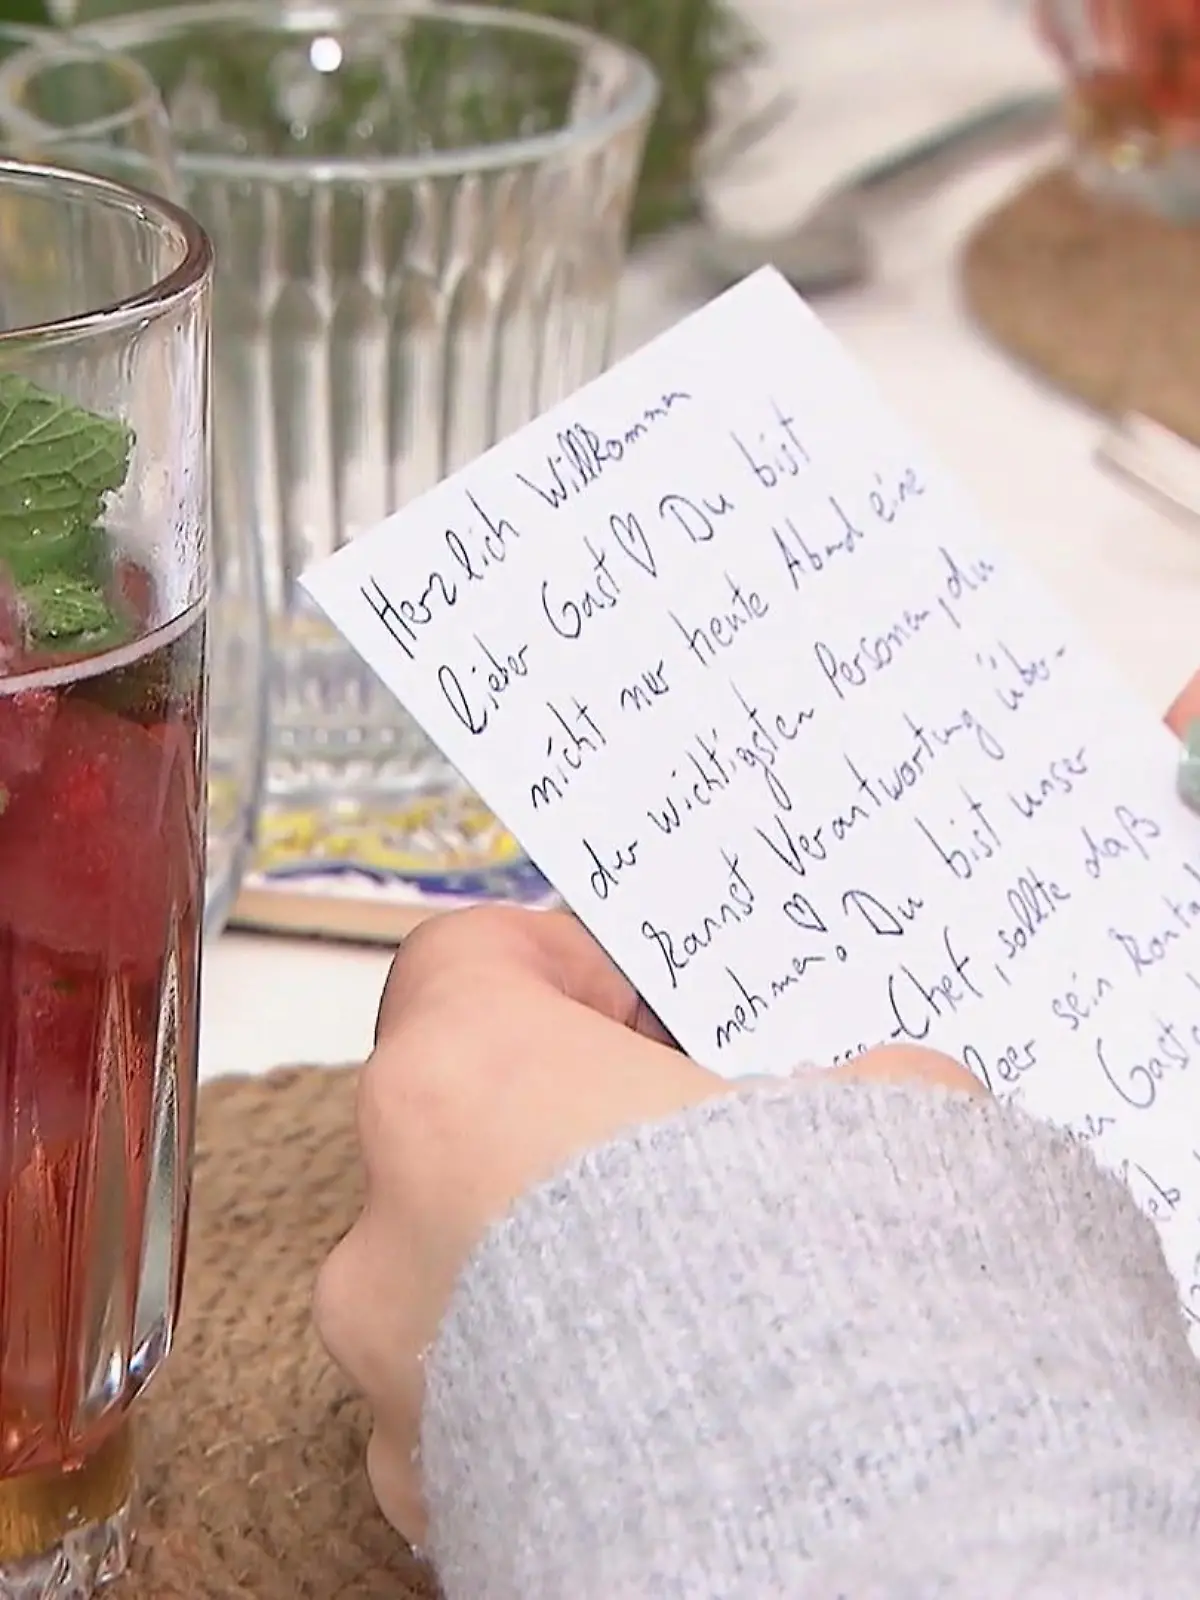 Herzlich Willkommen
lieber Gast ♡ Du bist
nicht nur heute Abend eine
der wichtigsten Personen, du
kannst Verantwortung über-
nehmen. ♡ Du bist unser
-Chef, sollte daß
leer sein
Gast